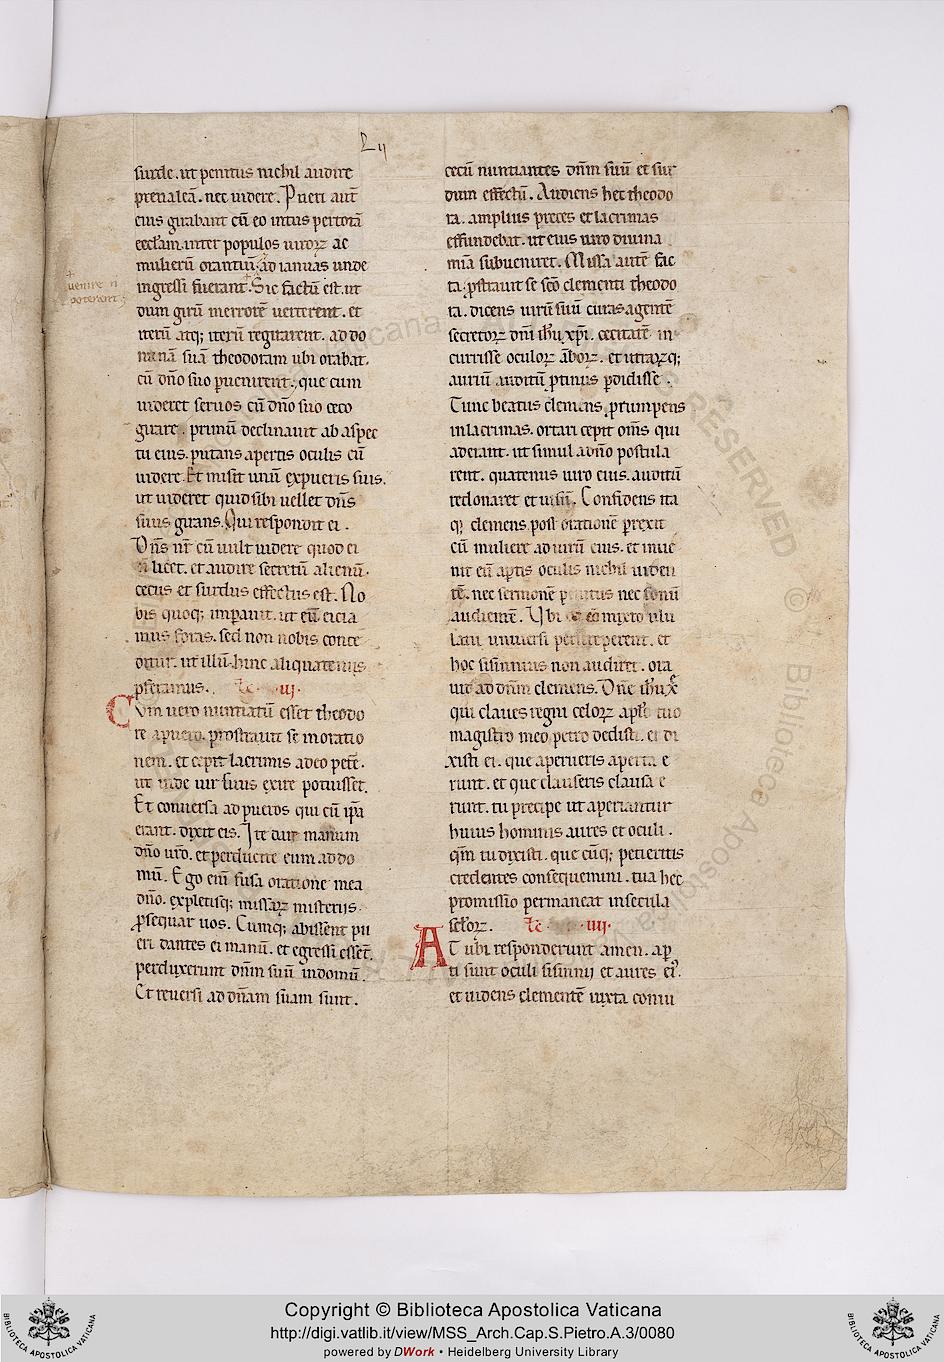 L ij
surde. ut penitus nichil audire
preualeā. nec uidere. Pueri aut̄
eius girabant cū eo intus per totā
eccl̄am. inter populos uiroꝝ ac
mulierū orantiū. ad ianuas unde
uenire n̄
poterant
ingressi fuerant. Sic factū est. ut
dum girū merrorē uerterent. et
iterū atq; iterū regirarent. ad do
minā suā theodoram ubi orabat.
cū dn̄o suo ꝑuenirent. que cum
uideret seruos cū dn̄o suo ceco
girare. primū declinauit ab aspec
tu eius. putans apertis oculis eū
uidere. Et misit unū ex pueris suis.
ut uideret quid sibi uellet dn̄s
suus girans. Qui respondit ei.
Dn̄s nr̄ cū uult uidere quod ei
n̄ licet. et audire secretū alienū.
cecus et surdus effectus est. No
bis quoq; imꝑauit. ut eū eicia
mus foras. sed non nobis conce
ditur. ut illū hinc aliquatenus
ꝓferamus. iij.
Cum uero nuntiatū esset theodo
re a puero. prostrauit se in oratio
nem. et cepit lacrimis a deo petē.
ut inde uir suus exire potuisset.
Et conuersa ad pueros qui cū ip̄a
erant. dixit eis. Ite date manum
dn̄o ur̄o. et perducite eum ad do
mū. Ego eni̅ fusa oratione mea
dn̄o. expletisq; missaꝝ misteriis.
ꝓsequar uos. Cumq; abissent pu
eri dantes ei manū. et egressi essēt.
perduxerunt dn̄m suū in domū.
Et reuersi ad dn̄am suam sunt.
cecū nuntiantes dn̄m suū et sur
dum effectū. Audiens hec theodo
ra. amplius preces et lacrimas
effundebat. ut eius uiro diuina
mīa subueniret. Missa autē fac
ta. ꝓstrauit se sc̄o clementi theodo
ra. dicens uirū suū curas agentē
secretoꝝ dn̄i ih̄u xp̄i. cecitatē in
currisse oculoꝝ āboꝝ. et utraꝝq;
auriū auditū ꝓtinus ꝑdidisse.
Tunc beatus clemens prrumpens
in lacrimas. ortari cepit om̄s qui
aderant. ut simul a dn̄o postula
rent. quatenus uiro eius. auditū
redonaret et uisū. Confidens ita
q; clemens post orationē ꝑrexit
cū muliere ad uirū eius. et inue
nit eū aꝑtis oculis nichil uiden
tē. nec sermonē penitus nec sonū
audientē. Ubi
universi et
hoc sisinnius non audiret. ora
uit ad dn̄m clemens. Dn̄e ih̄u xp̄e
qui claues regni celoꝝ apl̄o tuo
magistro meo petro dedisti. et di
xisti ei. que aperueris aperta e
runt. et que clauseris clausa e
runt. tu precipe ut aperiantur
huius hominis aures et oculi.
qm̄ tu dixisti. que cūq; petieritis
credentes consequemini. tua hec
promissio permaneat in secula
sc̄l̄oꝝ. iiij.
AT ubi responderunt amen. aꝑ
ti sunt oculi sisinnij et aures eiꝰ.
et uidens clementē iuxta coniu
Copyright © Biblioteca Apostolica Vaticana
http://digi.vatlib.it/view/MSS_Arch.Cap.S.Pietro.A.3/0080
powered by DWork • Heidelberg University Library